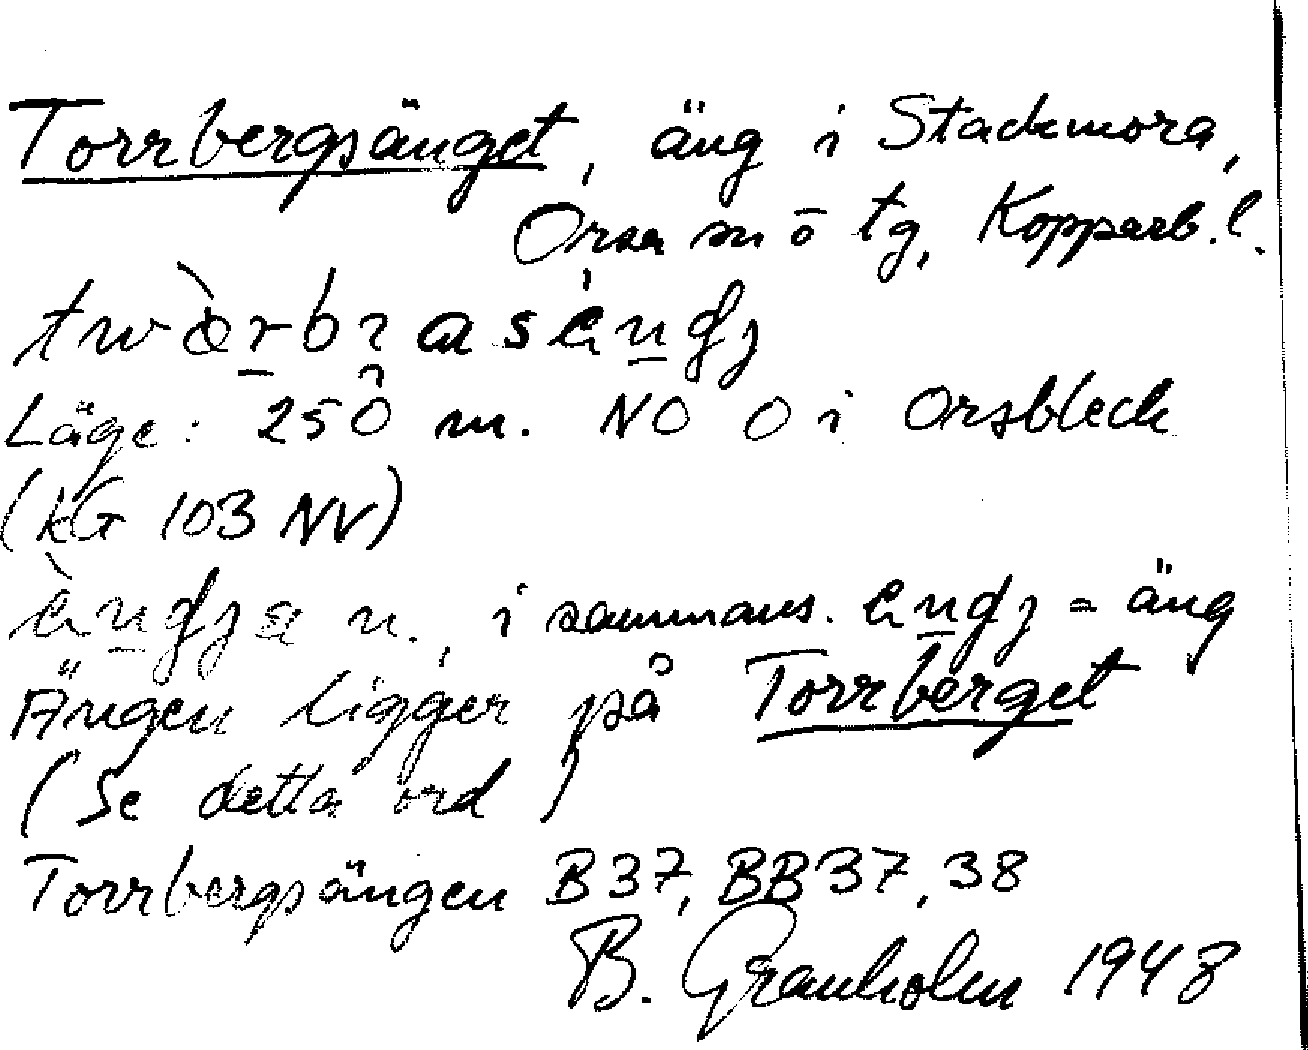 Torrbergsänget, äng i Stackmora,
Orsa sn ō tg, Kopparb. l.
Läge: 250 m. NO O i Orsbleck
(kG 103 NV)
n., i sammans. = äng
Ängen ligger på Torrberget
(Se detta ord)
Torrbergsängen B37, BB37, 38
B. Granholm 1948